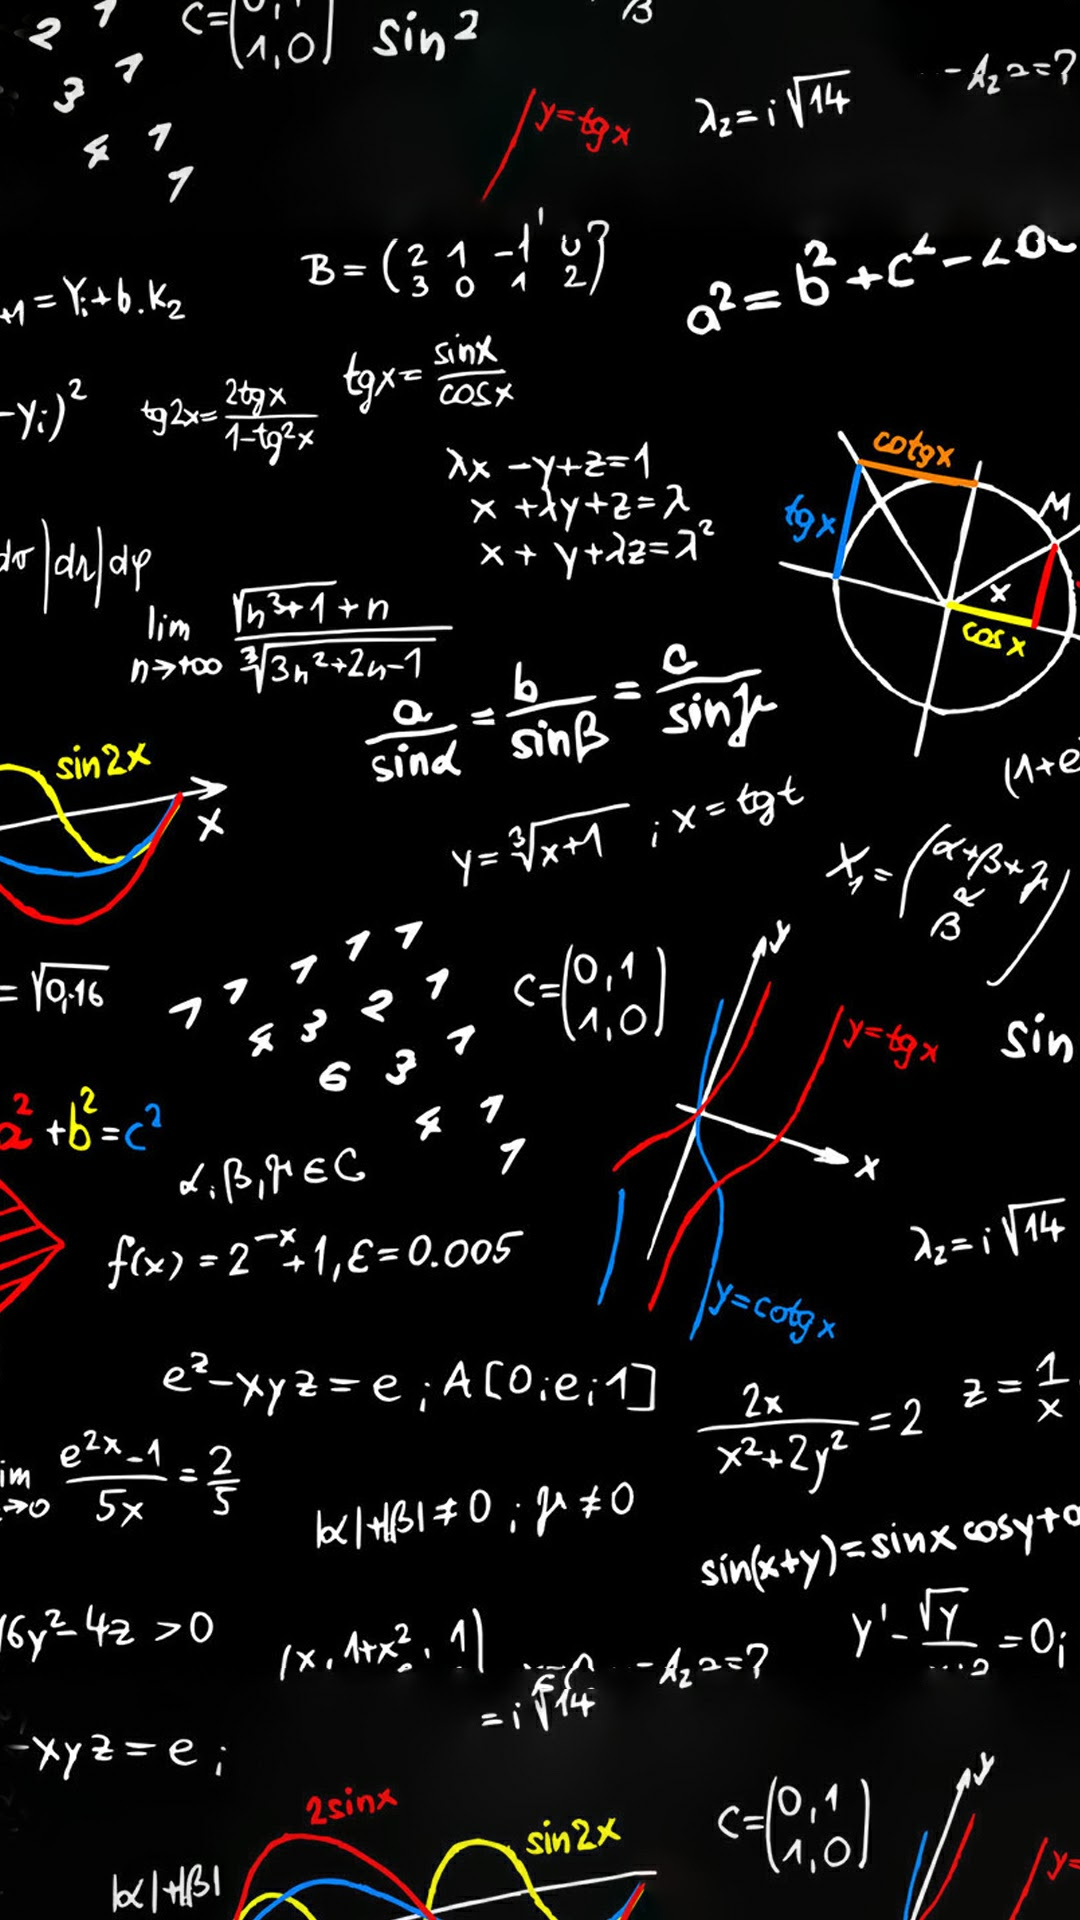 2 1
3 1
4 1
1
C=(0,1
1,0)
sin2
β
y=tgx
λ₂=i√14
-A₂ 2=?
B=(2 1 -1 0
3 0 1 2)
=Yᵢ+b.K₂
a²=b²+c²-2
-Yᵢ)²
tg2x=2tgx/1-tg²x
tgx=sinx/cosx
λx-y+z=1
x+λy+z=λ
x+y+λz=λ²
cotgx
tgx
M
x
cosx
|dr|dφ
lim n→+∞ √n³+1+n/∛3n²+2n-1
a/sinα=b/sinβ=c/sinγ
sin2x
x
(1+e
y=∛x+1 ; x=tgt
X₁=(α+β+γ
β
=√0,16
1 1 1 1 1
4 3 2 1
6 3 1
4 1
1
C=(0,1
1,0)
y
y=tgx
x
y=cotgx
sin
a²+b²=c²
α,β,γ∈C
f(x)=2⁻ˣ+1,ε=0.005
λ₂=i√14
e²-xyz=e;A[0;e;1]
2x/x²+2y²=2
z=1/x
im →0 e²ˣ-1/5x=2/5
|α|+|β|≠0;γ≠0
sin(x+y)=sinx cosy+
6y²-4z>0
(x,1+x²,1)
-A₂ 2=?
=i√14
y'-√y
=0;
-xyz=e;
2sinx
sin2x
C=(0,1
1,0)
y
y=
|α|+|β|